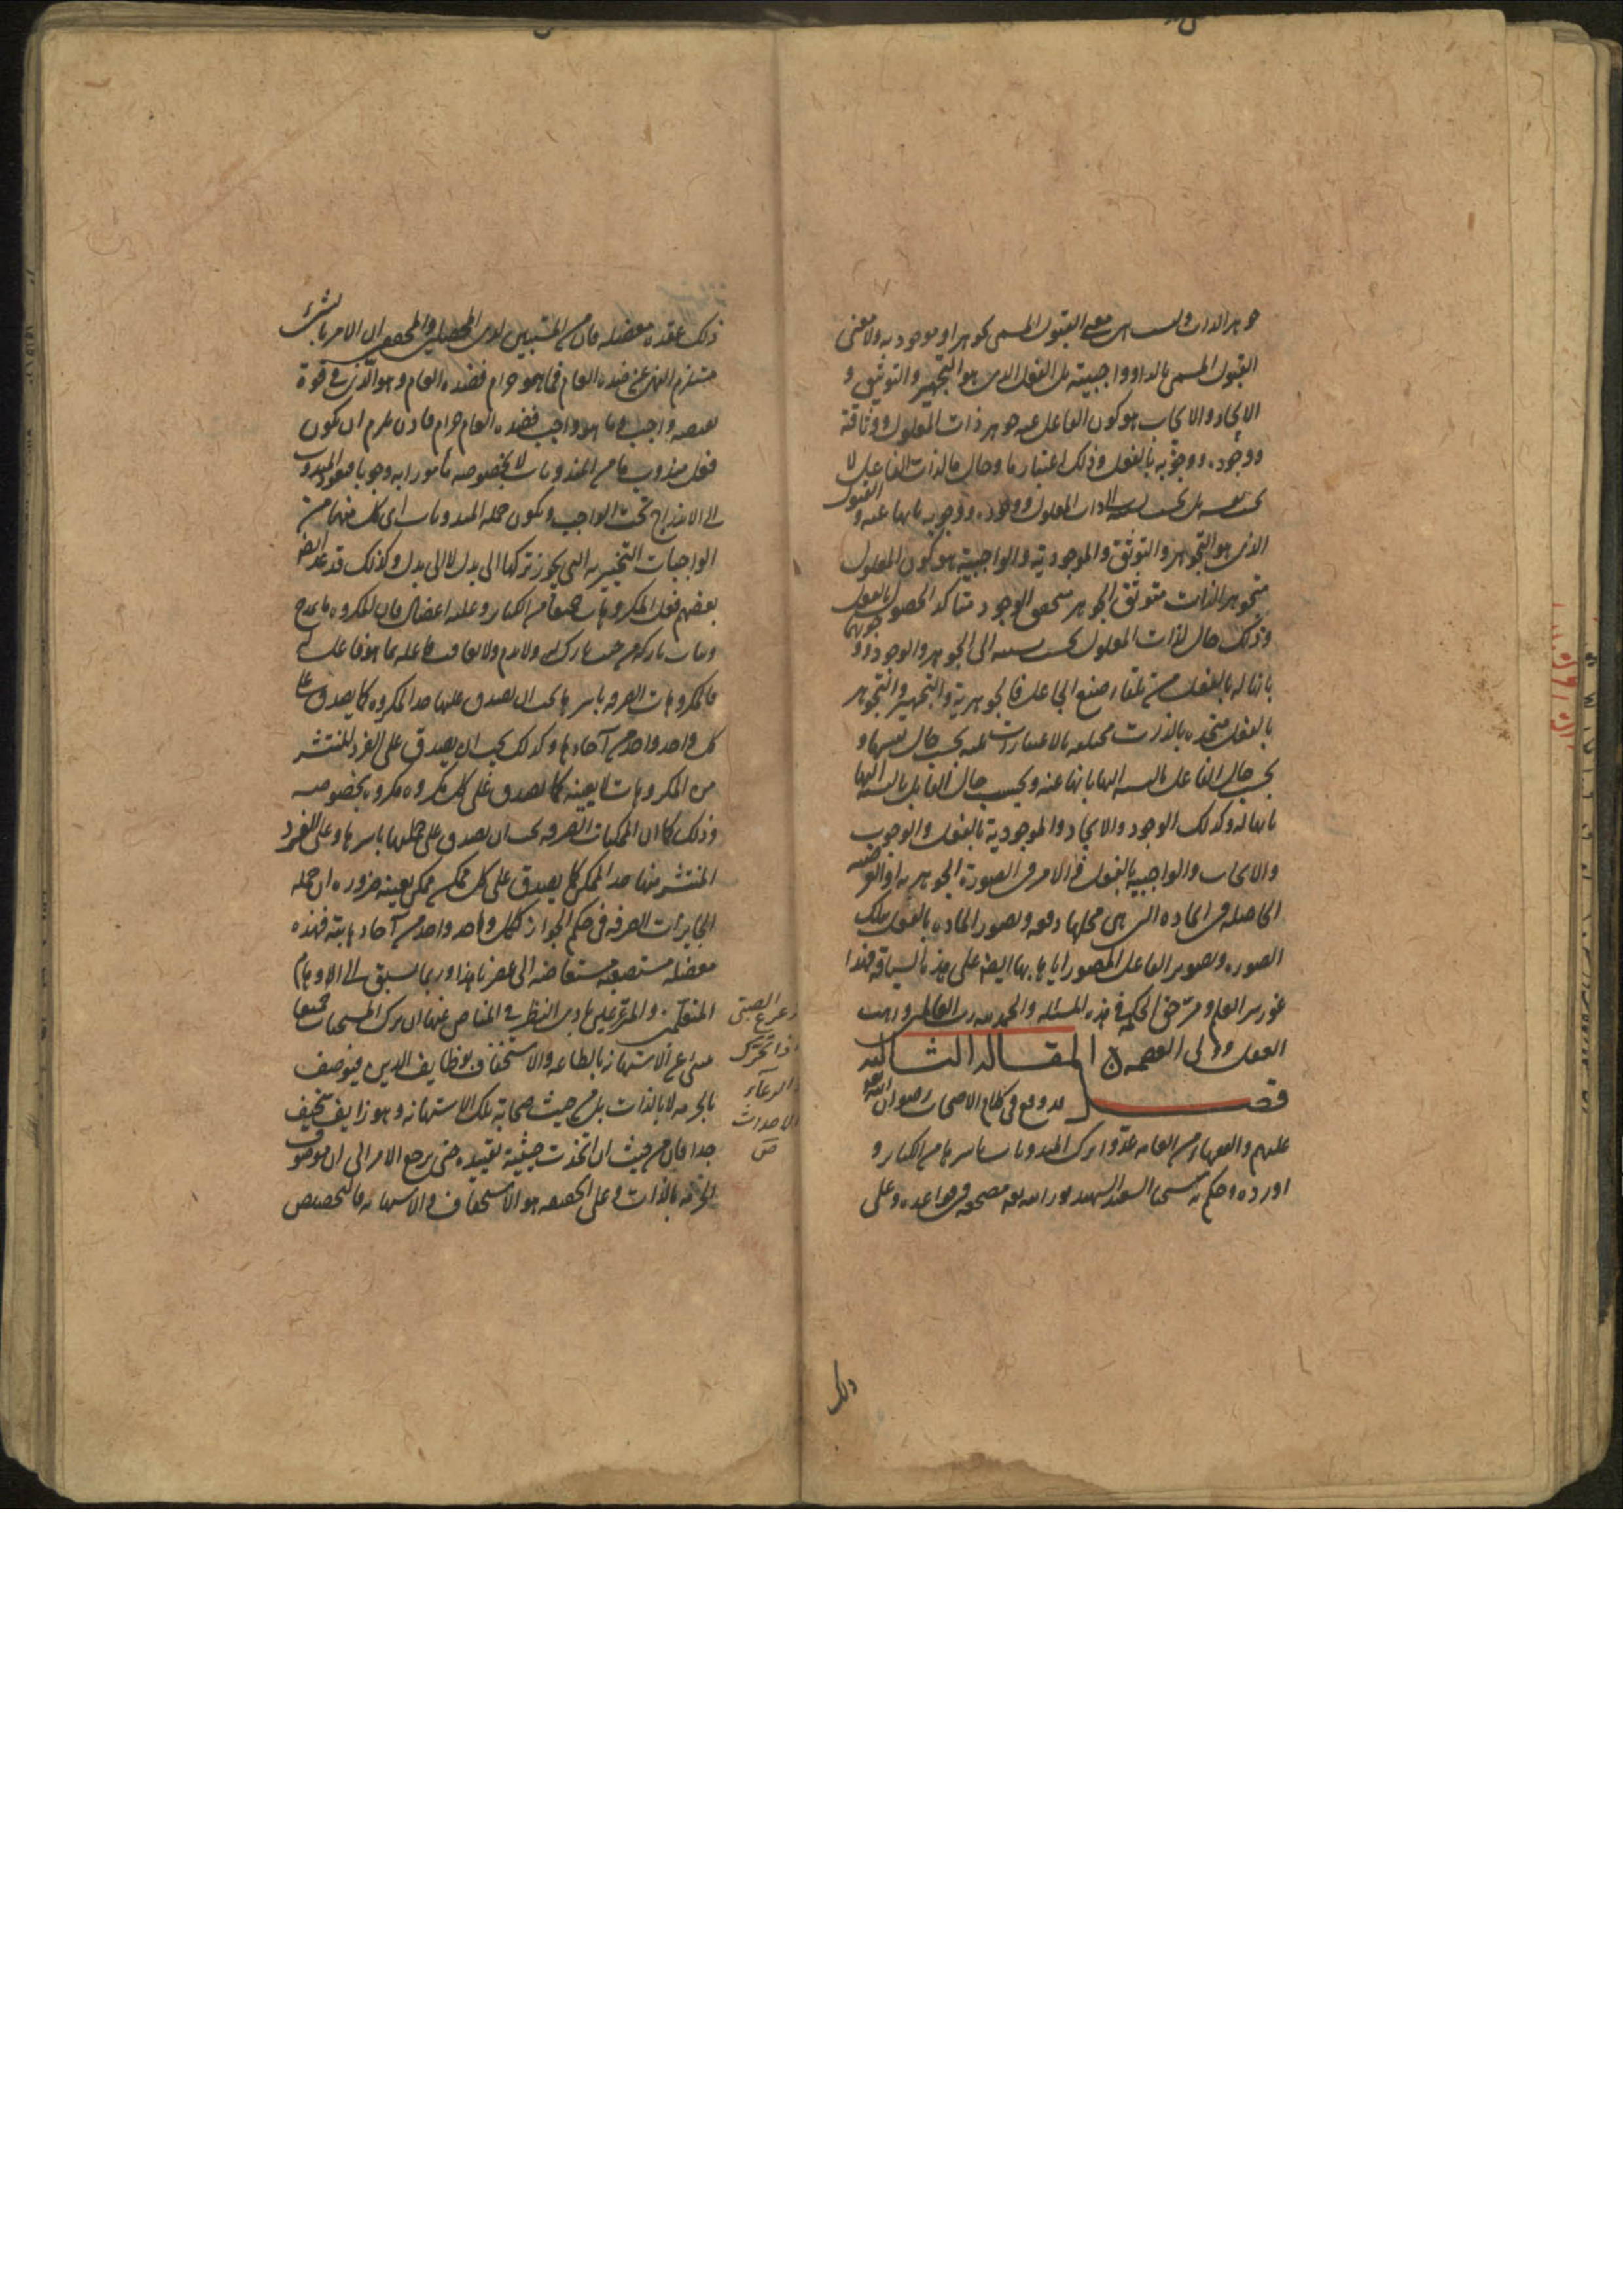 جوهر الذات وليست هى معنى القبول المسمى بجوهر او موجودية ولا معنى
القبول المسمى بالذا وواجبيته بل الفعل الذى هو التجهير والتوثيق و
الايجاد والايجاب هو كون الفاعل عنه جوهر ذات المعلول ووثاقة
ووجوده ووجوبه بالفعل وذلك اعتبار ما وحال ما لذات الفاعل لا
بحسب نفسه بل بحسب الذات المعلول ووجوده ووجوبه بانها عنه والقبول
الذى هو التجوهر والتوثق والموجودية والواجبية هو كون المعلول
متجوهر الذات متوثق الجوهر الوجود متاكد الحصول بالفعل
وذلك حال لذات المعلول بحسب الى الجوهر والوجود ووجوبهما
بانها له بالفعل من تلقاء صنع الجاعل فالجوهرية والتجهير والتجوهر
بالفعل متحدة بالذات مختلفة بالاعتبارات عنه بحسب حال نفسها و
بحسب حال الفاعل بالنسبة اليها بانها عنه وبحسب حال القابل بالنسبة اليها
بانها له وكذلك الوجود والايجاد والموجودية بالفعل والوجوب
والايجاب والواجبية بالفعل والامر فى الصورة الجوهرية او العرضية
الحاصلة فى المادة التى هى محلها دفعة وتصور المادة بالفعل بتلك
الصورة وتصوير الفاعل المصور اياها بها ايضا على هذه السياقة فهذا
غور سر العلم ومر حق الحكمة فى هذه المسئلة والحمد لله رب العالمين واهب
العقل وولى العصمة المقالة الثالثة
قصـ قد وقع فى كلام الاصحاب رضوان الله
عليهم والفقهاء من العامة عدوا ترك المندوبات باسرها من الكبائر و
اورده وحكم به شيخنا السعيد الشهيد نور الله تعالى مضجعه فى قواعده وعلى
ذلك
ذلك عقدة معضلة فان من المستبين لدى المحصلين ان الامر بالشئ
مستلزم النهى عن ضده العام فما هو حرام فضده العام وهو الذى فى قوة
نقيضه واجب وما هو واجب فضده العام حرام فاذن يلزم ان يكون
فعل مندوب ما من المندوبات لا بخصوصه مامورا به وجوبا فيعود المندوب
الى الاندراج تحت الواجب ويكون جملة المندوبات اى كل منها من
الواجبات التخييرية التى يجوز تركها الى بدل لا الى بدل وكذلك قد عد ايضا
بعضهم فعل المكروهات جميعا من الكبائر وعليه اعضال فان المكروه ما يمدح
ويثاب تاركه من حيث تاركه ولا يذم ولا يعاقب فاعله بما هو فاعل له
فالمكروهات الصرفة باسرها يجب ان يصدق عليها حد المكروه كما يصدق على
كل واحد واحد من آحادها وكذلك يجب ان يصدق على الفرد المنتشر
من المكروهات لا بعينه كما يصدق على كل مكروه مكروه بخصوصه
وذلك كما ان الممكنات الصرفة يجب ان يصدق على جملتها باسرها وعلى الفرد
المنتشر منها حد الممكن كما يصدق على كل ممكن ممكن بعينه ضرورة ان جملة
الجايزات الصرفة فى حكم الجواز ككل واحد واحد من آحادها بتة فهذه
معضلة مستصعبة الى عصرنا هذا وربما سبق الى الاوهام
المتفلسفين والمترعرعين بادى النظر فى المناص عنها ان ترك المستحبات جميعا
ينبئ عن الاستهانة بالطاعة والاستخفاف بوظايف الدين فيوصف
بالحرمة لا بالذات بل من حيث صحابة تلك الاستهانة وهو زايف سخيف
جدا فان من حيث ان اتخذت حيثية تقييدية حتى يرجع الامر الى ان موصوف
الحرمة بالذات وعلى الحقيقة هو الاستخفاف والاستهانة فالتخصيص
رعرع الصبى
اذا تحرك
الرعاء
الاحداث
ص